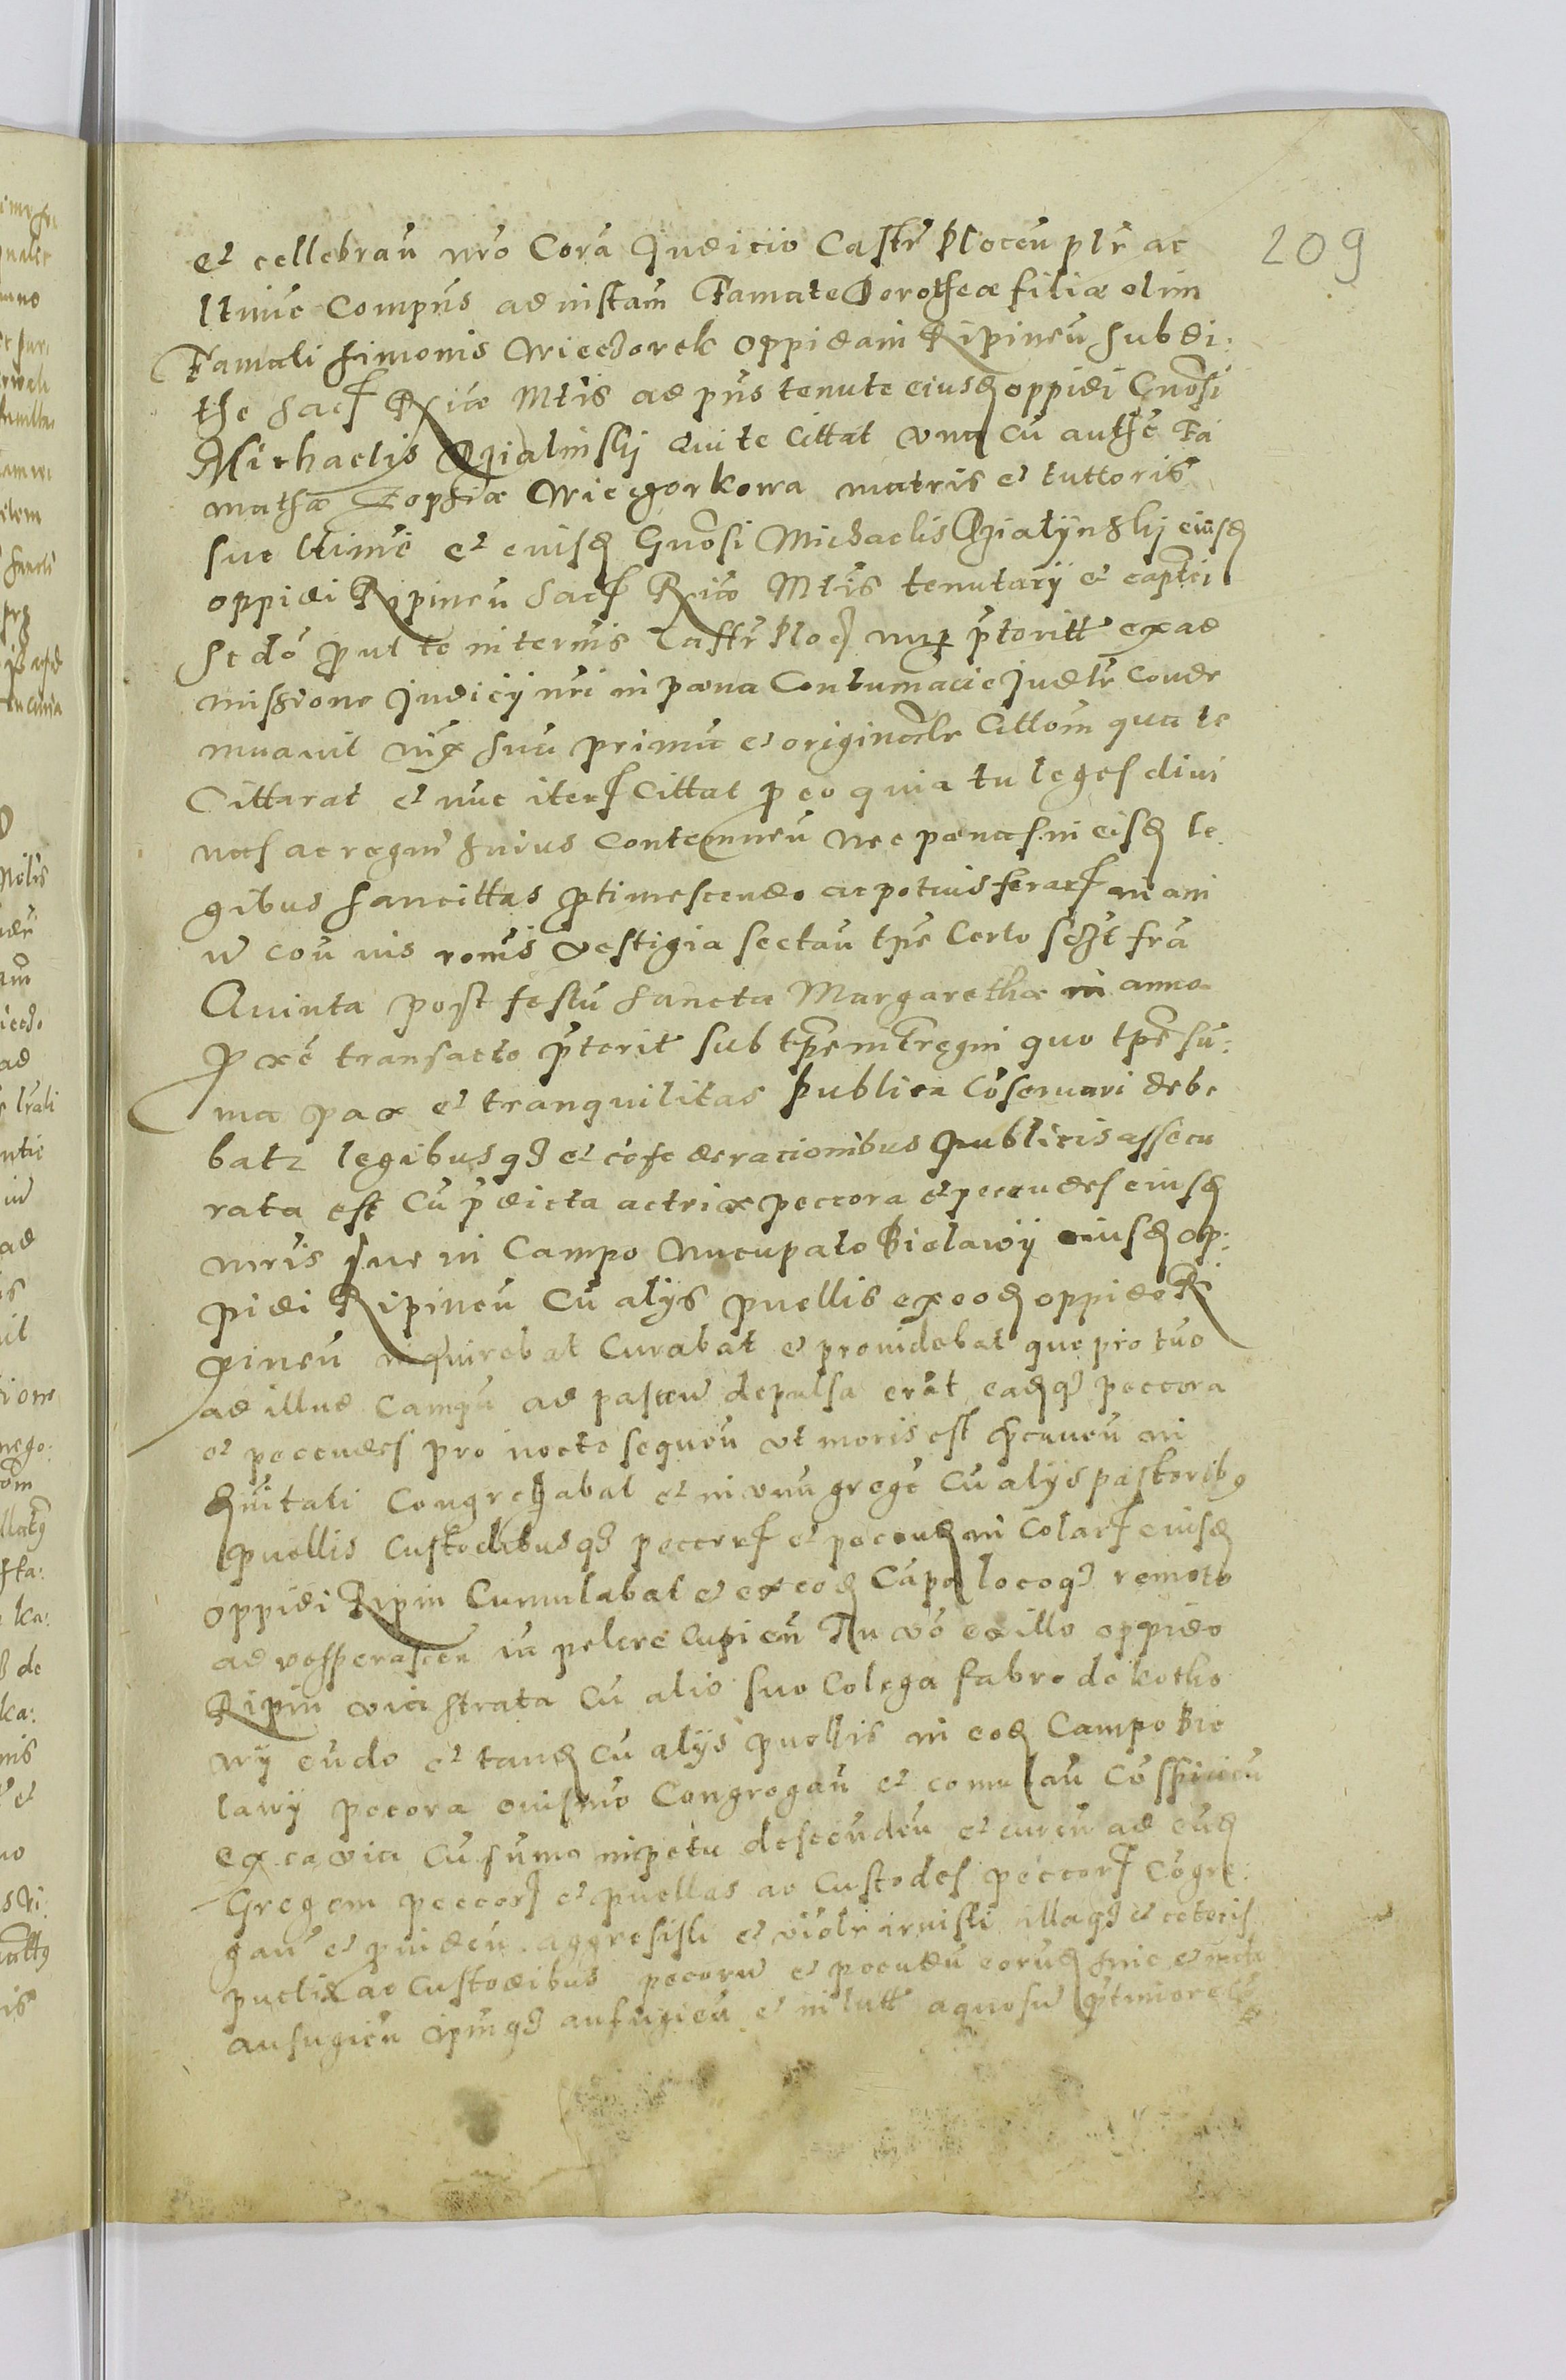 209
et cellebrañ nro Corã Judicio Castr Plocen plr ac
ltime Compns ad instam Famate Dorotheæ filiæ olim
Famati Simonis Wieczorek oppidani Ripineñ subdi:
the Sacr Rgiæ Mtis ad pns tenute eiusd oppidi Gnosi
Michaelis Dzialinskj qui te Cittat vna cũ auth Fa
mathæ Zophiæ Wieczorkowa matris et tuttoris
sue ltime et eiusd Gnosi Michaelis Dzialÿnskij eiusd
oppidi Ripineñ Sacr Rgiæ Mtis tenutarÿ et captei
Scdo prut te in termis Castr Ploc nup ptoritt ex ad
missione Judicij nri in pæna Contumacie Judtr Conde
mnauit iux sua prima et originale Cittom qua te
Cittarat et nuc iter Cittat p eo quia tu leges diui
nas ac regni huius Contemneñ nec pænas in eisd le
gibus sancittas ptimescendo ac potius ferar in ani
Quinta post festũ Sanctæ Margarethæ in anno
pxe transacto pterit sub tpe intregni quo tpe sũ:
ma pax et tranquilitas publica Cõseruari debe
batr legibusq et cõfederacionibus publicis assecu
rata est Cũ pdicta actrix peccora et pecudes eiusd
mris sue in Campo Nucupato Bielawÿ eiusd op:
pidi Ripineñ Cũ alÿs puellis ex eod oppido Ri
pineñ inquirebat Curabat et prouidebat que pro tuc
ad illud Campũ ad pascũ depulsa erãt eadq peccora
et pecudes pro nocte sequeñ vt moris est
Ciuitati Congregabat et in vnũ grege Cũ alÿs pastoribq
puellis Custodibusq peccor et pecud in Colar eiusd
oppidi Ripin Cumulabat et ex eod Cãpo locoq remoto
ad vesperasceñ petere Cupieñ Tu vo ex illo oppido
Ripin via strata Cũ alio suo Colega fabro de Kotho
wÿ eũdo et tand Cũ alÿs puellis in eod Campo Bie
lawÿ pecora Congregañ et comulañ Cõspicieñ
ex ea via Cũ sũmo inpetu descendeñ et cureñ ad eũd
Gregem peccor et puellas ac Custodes peccor Cõgre:
gañ et puideñ aggresisti et violr irruisti illaq et ceteris
puellis ac Custodibus pecorũ et pecudũ eorud huic et inde
aufugieñ ipmq aufugieñ et in lutt aquosũ